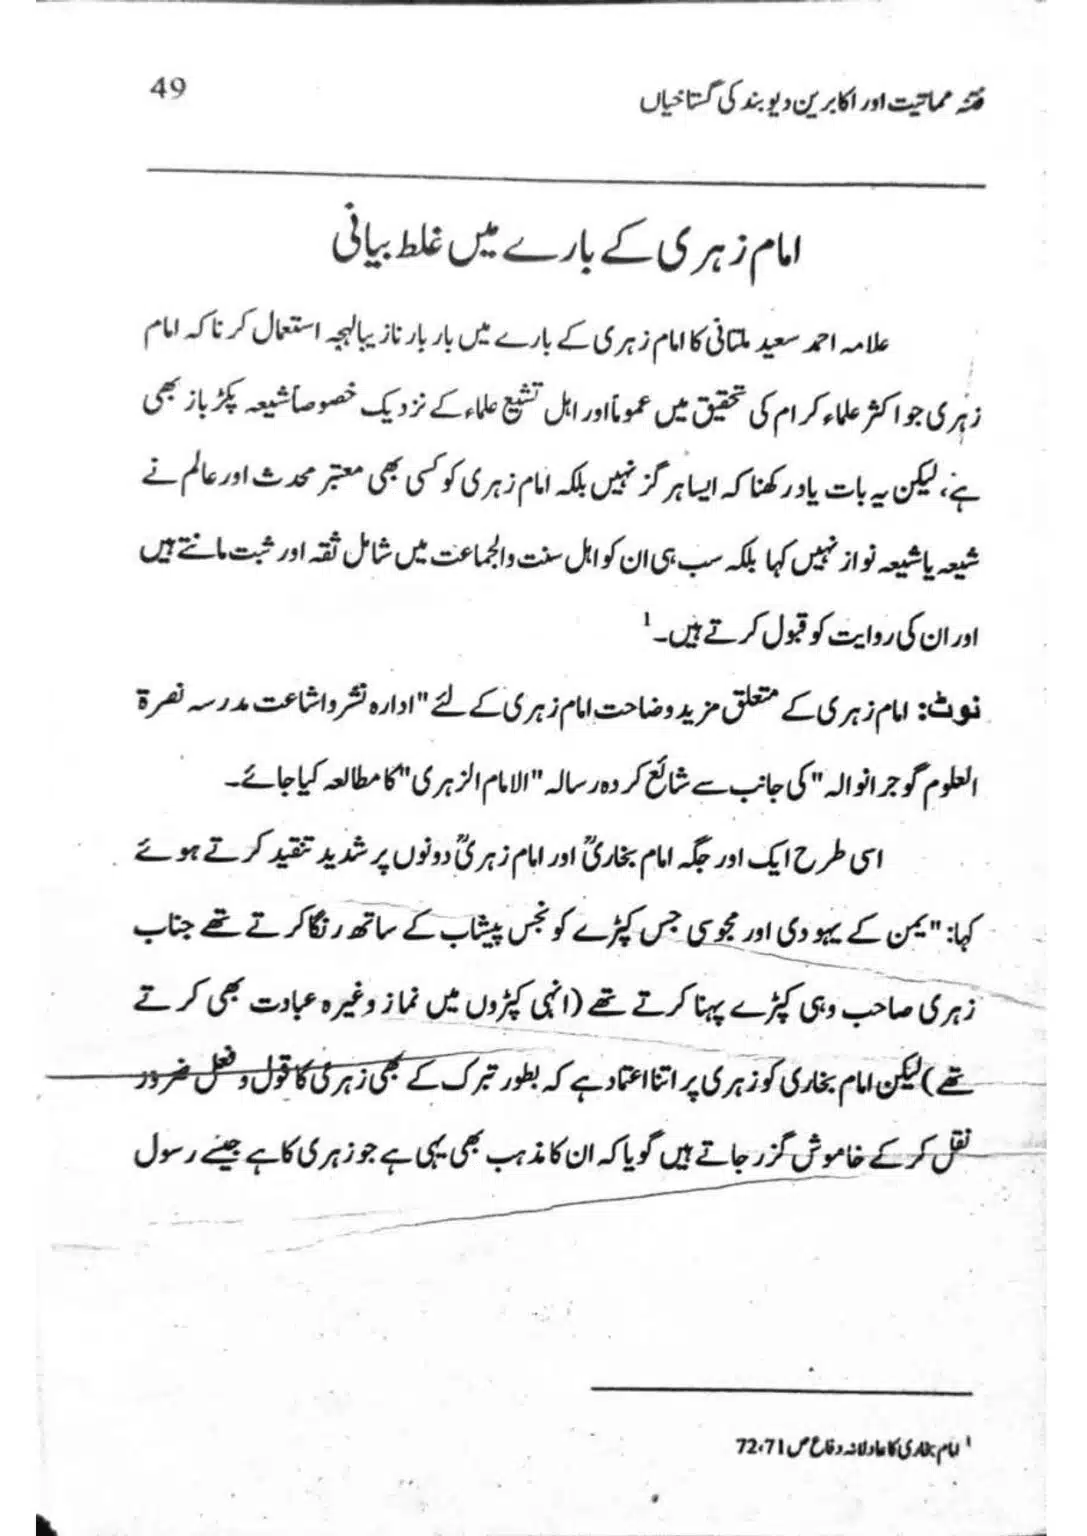 فتنہ مماتیت اور اکابرین دیوبند کی گستاخیاں
49
امام زہری کے بارے میں غلط بیانی
علامہ احمد سعید ملتانی کا امام زہری کے بارے میں بار بار نازیبا لہجہ استعمال کرنا کہ امام
زہری جو اکثر علماء کرام کی تحقیق میں عموماً اور اہل تشیع علماء کے نزدیک خصوصاً شیعہ پکڑ باز بھی
ہے، لیکن یہ بات یاد رکھنا کہ ایسا ہرگز نہیں بلکہ امام زہری کو کسی بھی معتبر محدث اور عالم نے
شیعہ یا شیعہ نواز نہیں کہا بلکہ سب ہی ان کو اہل سنت والجماعت میں شامل ثقہ اور ثبت مانتے ہیں
اور ان کی روایت کو قبول کرتے ہیں۔1
نوٹ: امام زہری کے متعلق مزید وضاحت امام زہری کے لئے "ادارہ نشر و اشاعت مدرسہ نصرۃ
العلوم گوجرانوالہ" کی جانب سے شائع کردہ رسالہ "الامام الزہری" کا مطالعہ کیا جائے۔
اسی طرح ایک اور جگہ امام بخاریؒ اور امام زہریؒ دونوں پر شدید تنقید کرتے ہوئے
کہا: "یمن کے یہودی اور مجوسی جس کپڑے کو نجس پیشاب کے ساتھ رنگا کرتے تھے جناب
زہری صاحب وہی کپڑے پہنا کرتے تھے (انہی کپڑوں میں نماز وغیرہ عبادت بھی کرتے
تھے) لیکن امام بخاری کو زہری پر اتنا اعتماد ہے کہ بطور تبرک کے بھی زہری کا قول و فعل ضرور
نقل کر کے خاموش گزر جاتے ہیں گویا کہ ان کا مذہب بھی یہی ہے جو زہری کا ہے جیسے رسول
1 امام بخاری کا عادلانہ دفاع ص 72،71